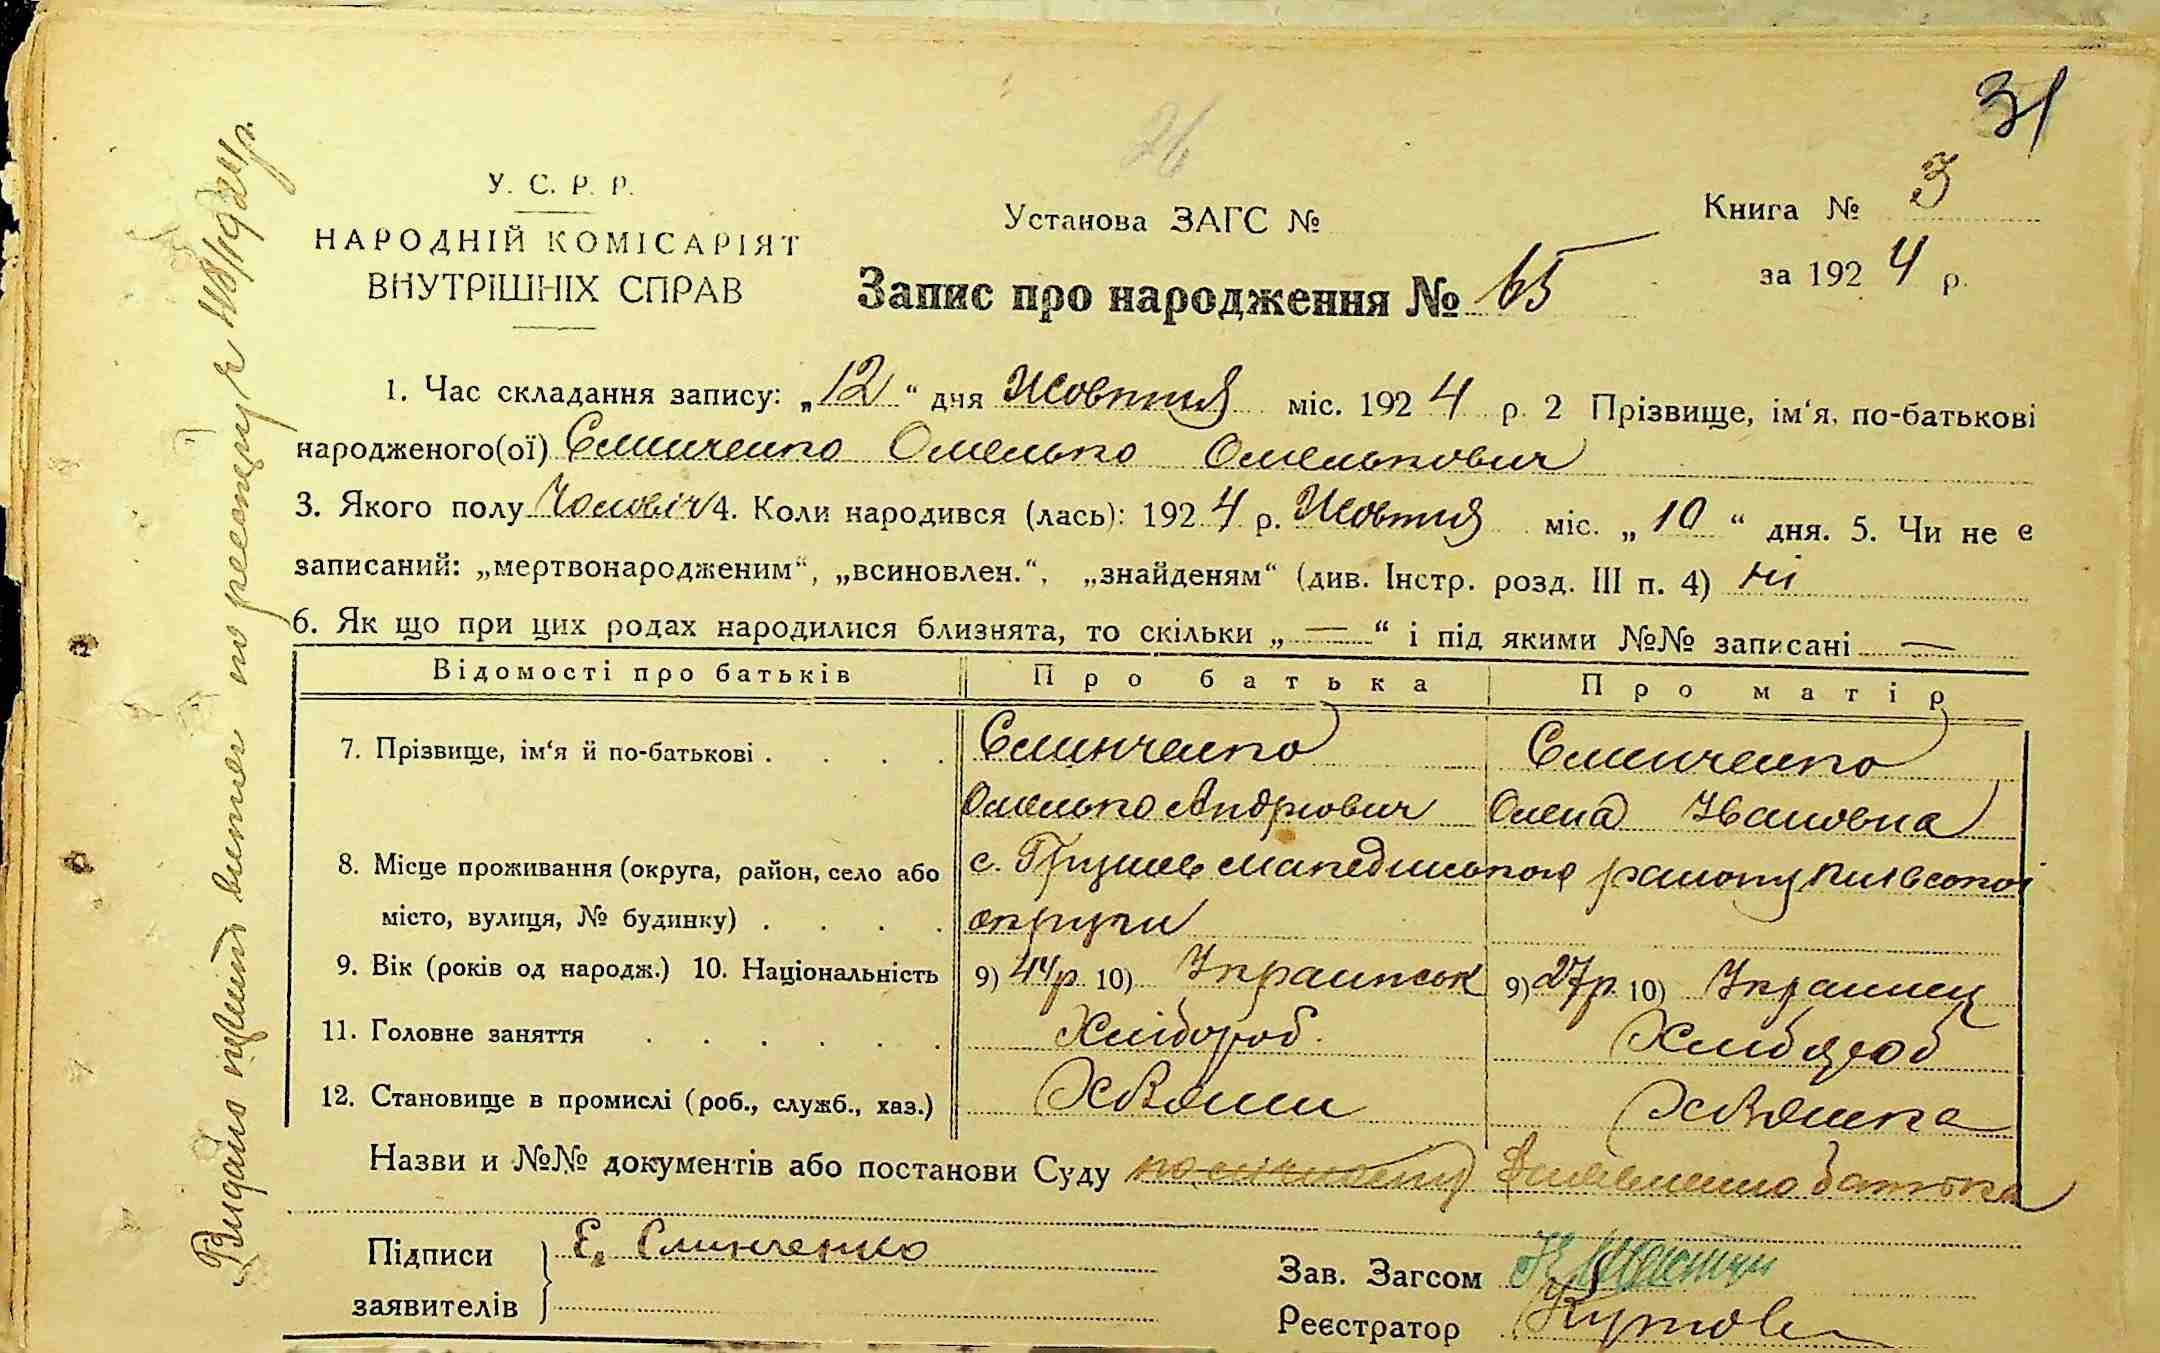 31
26
У. С. Р. Р.
НАРОДНІЙ КОМІСАРІЯТ
ВНУТРІШНІХ СПРАВ
Установа ЗАГС №
Книга № 3
за 1924 р.
Запис про народження № 65
1. Час складання запису: „12“ дня Жовтня міс. 1924 р. 2 Прізвище, ім‘я, по-батькові
народженого(ої) Слинченко Омелько Омелькович
3. Якого полу Чоловіч 4. Коли народився (лась): 1924 р. Жовтня міс. „10“ дня. 5. Чи не є
записаний: „мертвонародженим“, „всиновлен.“, „знайденям“ (див. Інстр. розд. III п. 4) ні
6. Як що при цих родах народилися близнята, то скільки „—“ і під якими №№ записані —
Відомості про батьків Про батька Про матір
7. Прізвище, ім‘я й по-батькові . . . . Слинченко Слинченко
Омелько Андріович Олена Івановна
8. Місце проживання (округа, район, село або с. Грузьке Макединського району Київської
місто, вулиця, № будинку) . . . . округи
9. Вік (років од народж.) 10. Національність 9) 44р. 10) Українськ 9) 27р. 10) Украинец
11. Головне заняття . . . . . . Хлібороб. Хлибороб
12. Становище в промислі (роб., служб., хаз.) Хозяин Хозяйка
Назви и №№ документів або постанови Суду батька
Підписи Е. Слинченко
заявителів
Зав. Загсом
Реєстратор
Видано перший витяг по реестру № 1924р.